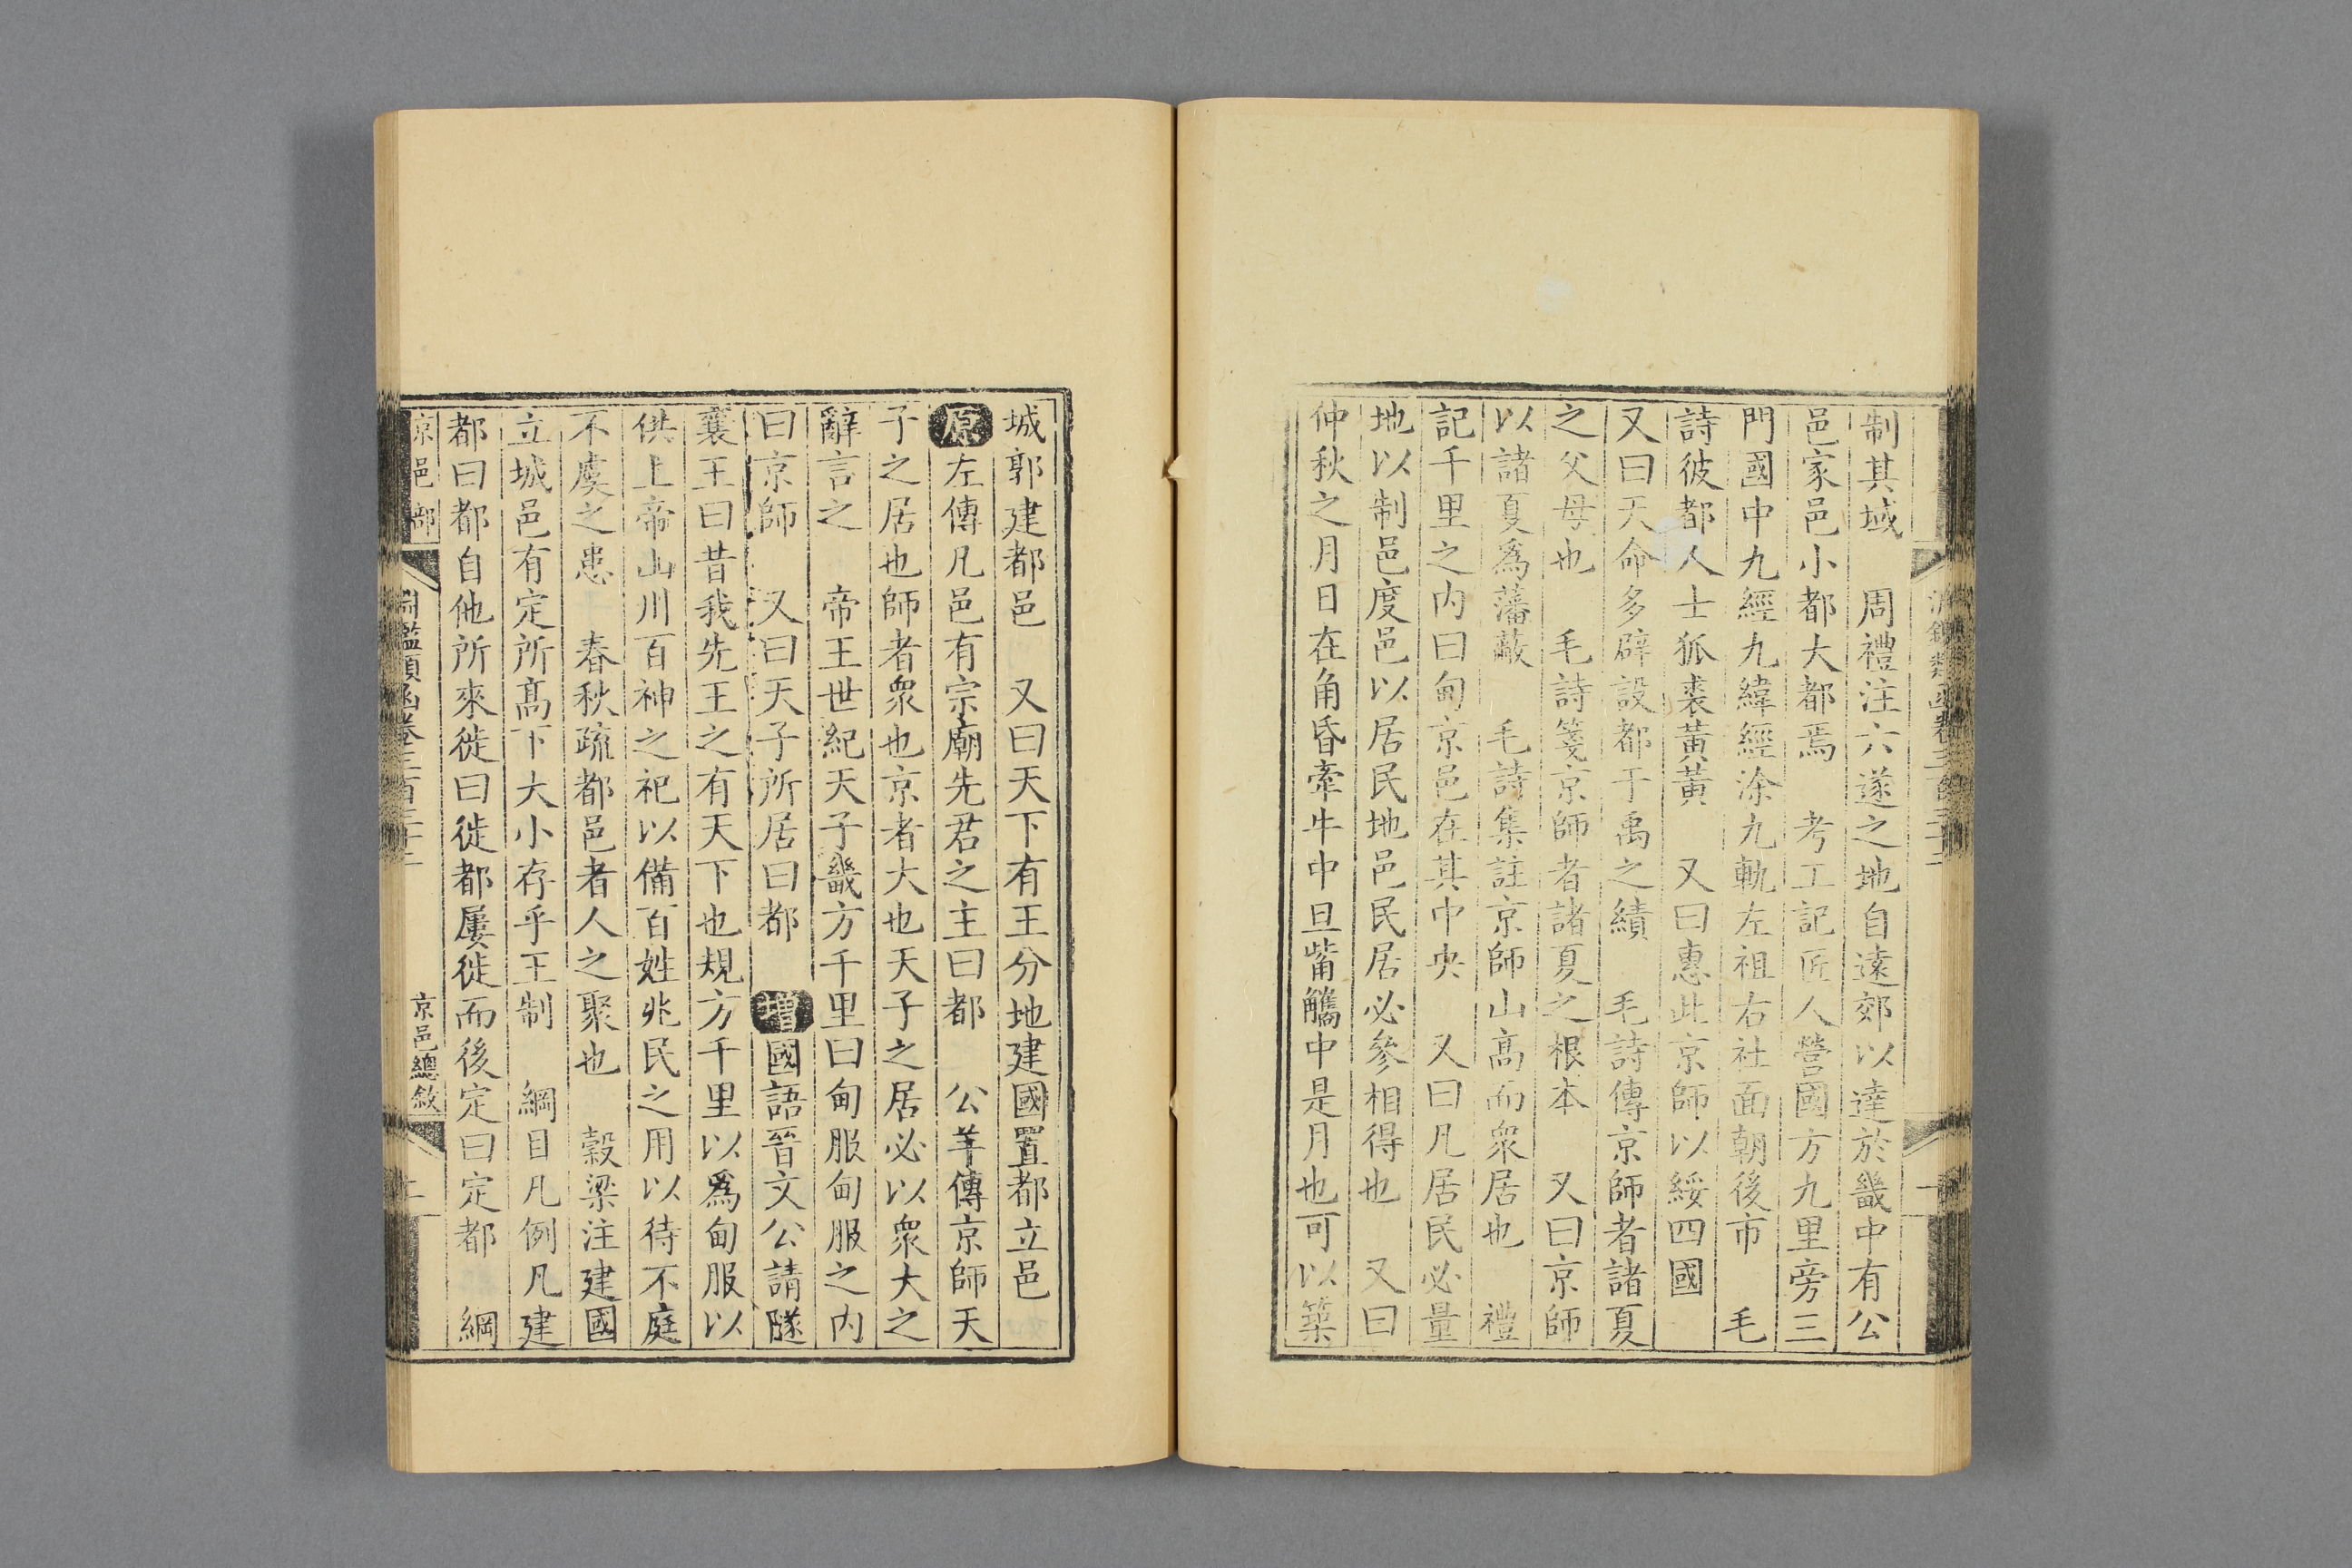 制其域　周禮注六遂之地自遠郊以達於畿中有公
邑家邑小都大都焉　考工記匠人營國方九里旁三
門國中九經九緯經涂九軌左祖右社面朝後市　毛
詩彼都人士狐裘黃黃　又曰惠此京師以綏四國
又曰天命多辟設都于禹之績　毛詩傳京師者諸夏
之父母也　毛詩箋京師者諸夏之根本　又曰京師
以諸夏爲藩蔽　毛詩集註京師山高而衆居也　禮
記千里之內曰甸京邑在其中央　又曰凡居民必量
地以制邑度邑以居民地邑民居必參相得也　又曰
仲秋之月日在角昏牽牛中旦觜觿中是月也可以築
城郭建都邑　又曰天下有王分地建國置都立邑
原左傳凡邑有宗廟先君之主曰都　公羊傳京師天
子之居也師者衆也京者大也天子之居必以衆大之
辭言之　帝王世紀天子畿方千里曰甸服甸服之內
曰京師　又曰天子所居曰都　增國語晉文公請隧
襄王曰昔我先王之有天下也規方千里以爲甸服以
供上帝山川百神之祀以備百姓兆民之用以待不庭
不虞之患　春秋疏都邑者人之聚也　穀梁注建國
立城邑有定所高下大小存乎王制　綱目凡例凡建
都曰都自他所來徙曰徙都屢徙而後定曰定都　綱
京邑部　淵鑑類函卷三百三十二　京邑總敘　二